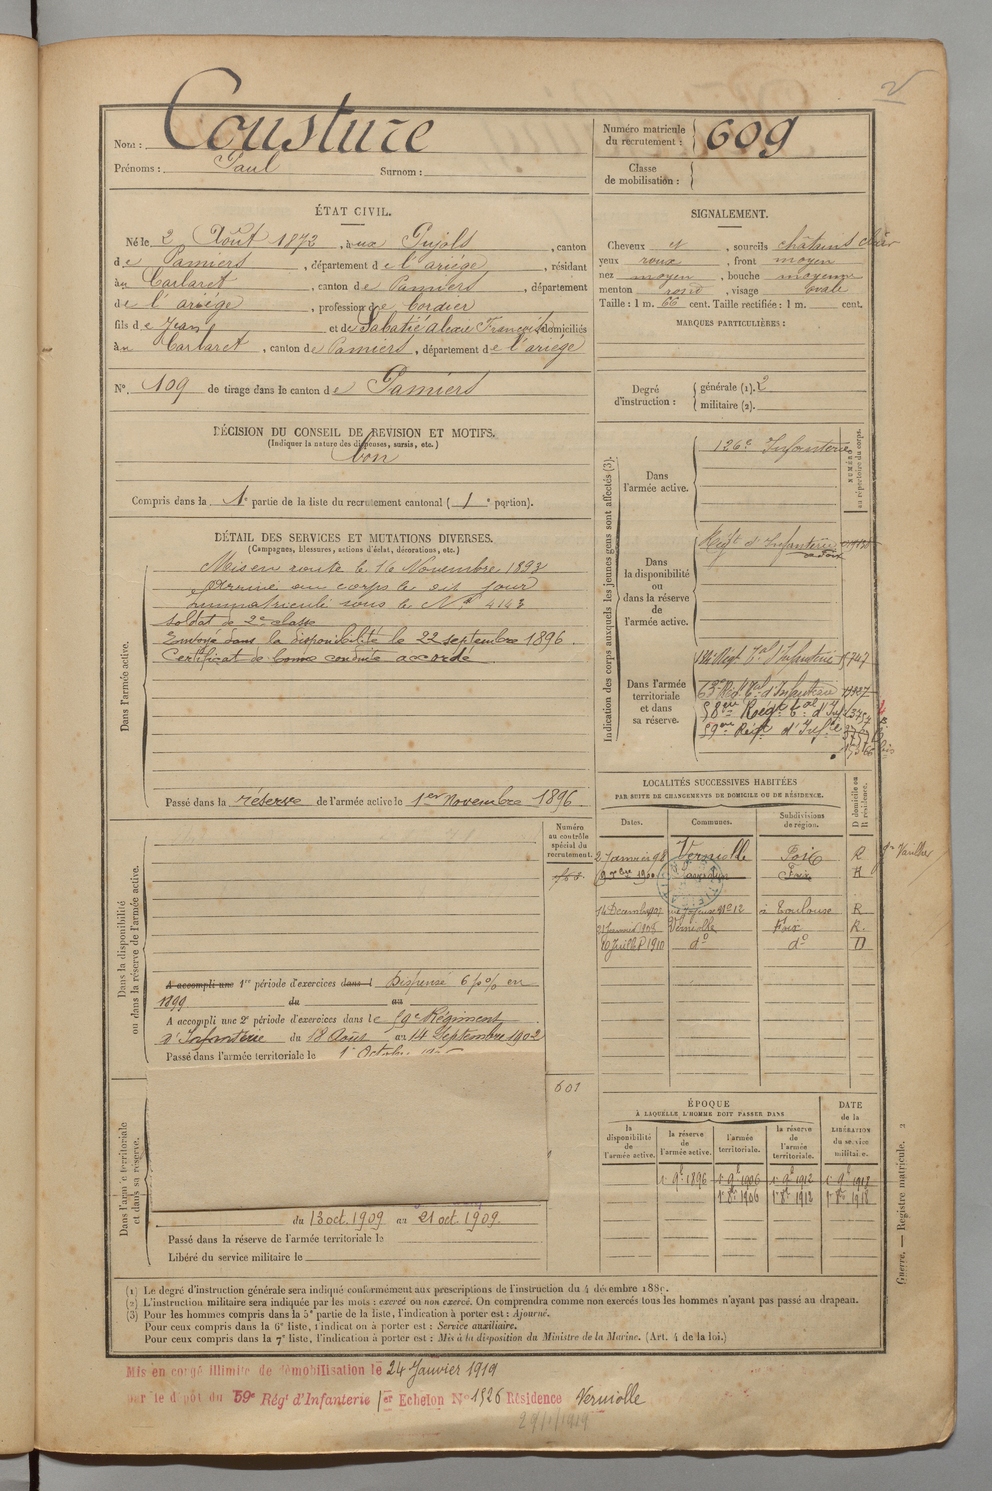 Nom : Cousture
Prénoms : Paul Surnom :
Numéro matricule du recrutement : 609
Classe de mobilisation :
ÉTAT CIVIL.
Né le 2 Août 1872, à aux Pujols, canton
de Pamiers, département de l'ariége, résidant
à au Carlaret, canton de Pamiers, département
de l'ariége, profession de Cordier
fils de Jean et de Sabatié Alexie Françoise domiciliés
à au Carlaret, canton de Pamiers, département de l'ariége
N° 109 de tirage dans le canton de Pamiers
DÉCISION DU CONSEIL DE REVISION ET MOTIFS.
(Indiquer la nature des dispenses, sursis, etc.)
bon
Compris dans la 1e partie de la liste du recrutement cantonal ( 1 e portion).
SIGNALEMENT.
Cheveux et, sourcils châtains clair
yeux roux, front moyen
nez moyen, bouche moyenne
menton rond, visage ovale
Taille : 1 m. 66 cent. Taille rectifiée : 1 m. cent.
MARQUES PARTICULIÈRES :
Degré d'instruction : générale (1). 2
militaire (2).
DÉTAIL DES SERVICES ET MUTATIONS DIVERSES.
(Campagnes, blessures, actions d'éclat, décorations, etc.)
Dans l'armée active.
Mis en route le 16 Novembre 1893
Arrivé au corps le dit jour
Immatriculé sous le No 4143
Soldat de 2e classe
Envoyé dans la disponibilité le 22 septembre 1896
Certificat de bonne conduite accordé
Passé dans la réserve de l'armée active le 1er Novembre 1896.
Indication des corps auxquels les jeunes gens sont affectés (3).
NUMÉRO au répertoire du corps.
Dans l'armée active.
126e Infanterie
Dans la disponibilité ou dans la réserve de l'armée active.
Régt d'Infanterie de Foix
Dans l'armée territoriale et dans sa réserve.
Régt Tal d'Infanterie
63e Régt Tal d'Infanterie
58ème Régt Tal d'Inf
59ème Régt d'Infie
LOCALITÉS SUCCESSIVES HABITÉES
PAR SUITE DE CHANGEMENTS DE DOMICILE OU DE RÉSIDENCE.
Dates. Communes. Subdivisions de région. D domicile ou R résidence.
27 janvier 98 Verniolle Foix R
9 1900 Foix R
14 Décembre 1907 No 12 à Toulouse R
Verniolle Foix R.
10 Juillet 1910 do do D
Dans la disponibilité ou dans la réserve de l'armée active.
Numéro au contrôle spécial du recrutement.
A accompli une 1re période d'exercices dans l Dispensé 6 p% en
1899 du au
A accompli une 2e période d'exercices dans le 59e Régiment
d'Infanterie du 18 Août au 14 Septembre 1902
Passé dans l'armée territoriale le 1er Octobre
601
Dans l'armée territoriale et dans sa réserve.
du 13 oct. 1909 au 21 oct. 1909.
Passé dans la réserve de l'armée territoriale le
Libéré du service militaire le
ÉPOQUE
À LAQUELLE L'HOMME DOIT PASSER DANS
la disponibilité de l'armée active. la réserve de l'armée active. l'armée territoriale. la réserve de l'armée territoriale.
DATE de la LIBÉRATION du service militaire.
1er 9bre 1896 1er 9bre 1906 1er 9bre 1912 1er 9bre 1918
1er 8bre 1906 1er 8bre 1912 1er 8bre 1918
Guerre. — Registre matricule. 2
(1) Le degré d'instruction générale sera indiqué conformément aux prescriptions de l'instruction du 4 décembre 1889.
(2) L'instruction militaire sera indiquée par les mots : exercé ou non exercé. On comprendra comme non exercés tous les hommes n'ayant pas passé au drapeau.
(3) Pour les hommes compris dans la 5e partie de la liste, l'indication à porter est : Ajourné.
Pour ceux compris dans la 6e liste, l'indication à porter est : Service auxiliaire.
Pour ceux compris dans la 7e liste, l'indication à porter est : Mis à la disposition du Ministre de la Marine. (Art. 4 de la loi.)
Mis en congé illimité de démobilisation le 24 Janvier 1919
par le dépôt du 59e Régt d'Infanterie 1er Echelon No 1926 Résidence Verniolle
29/1/1919